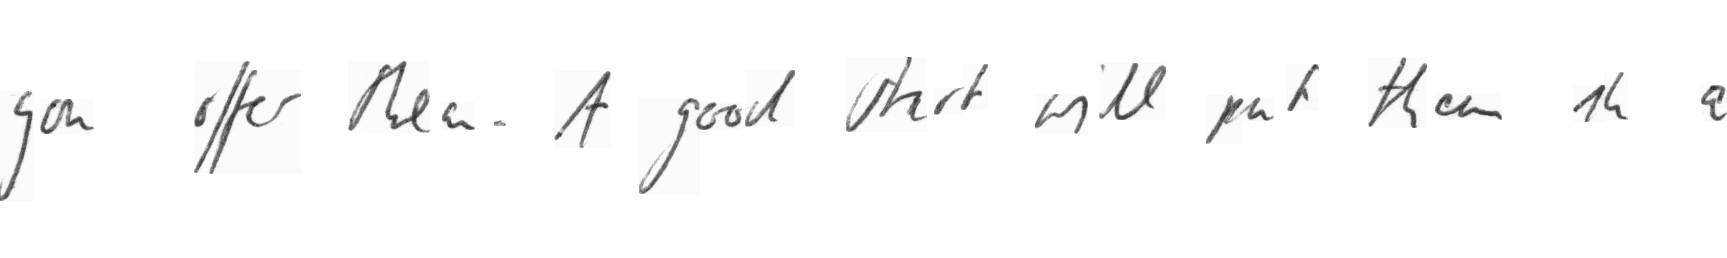 you offer them. A good start will put them in a